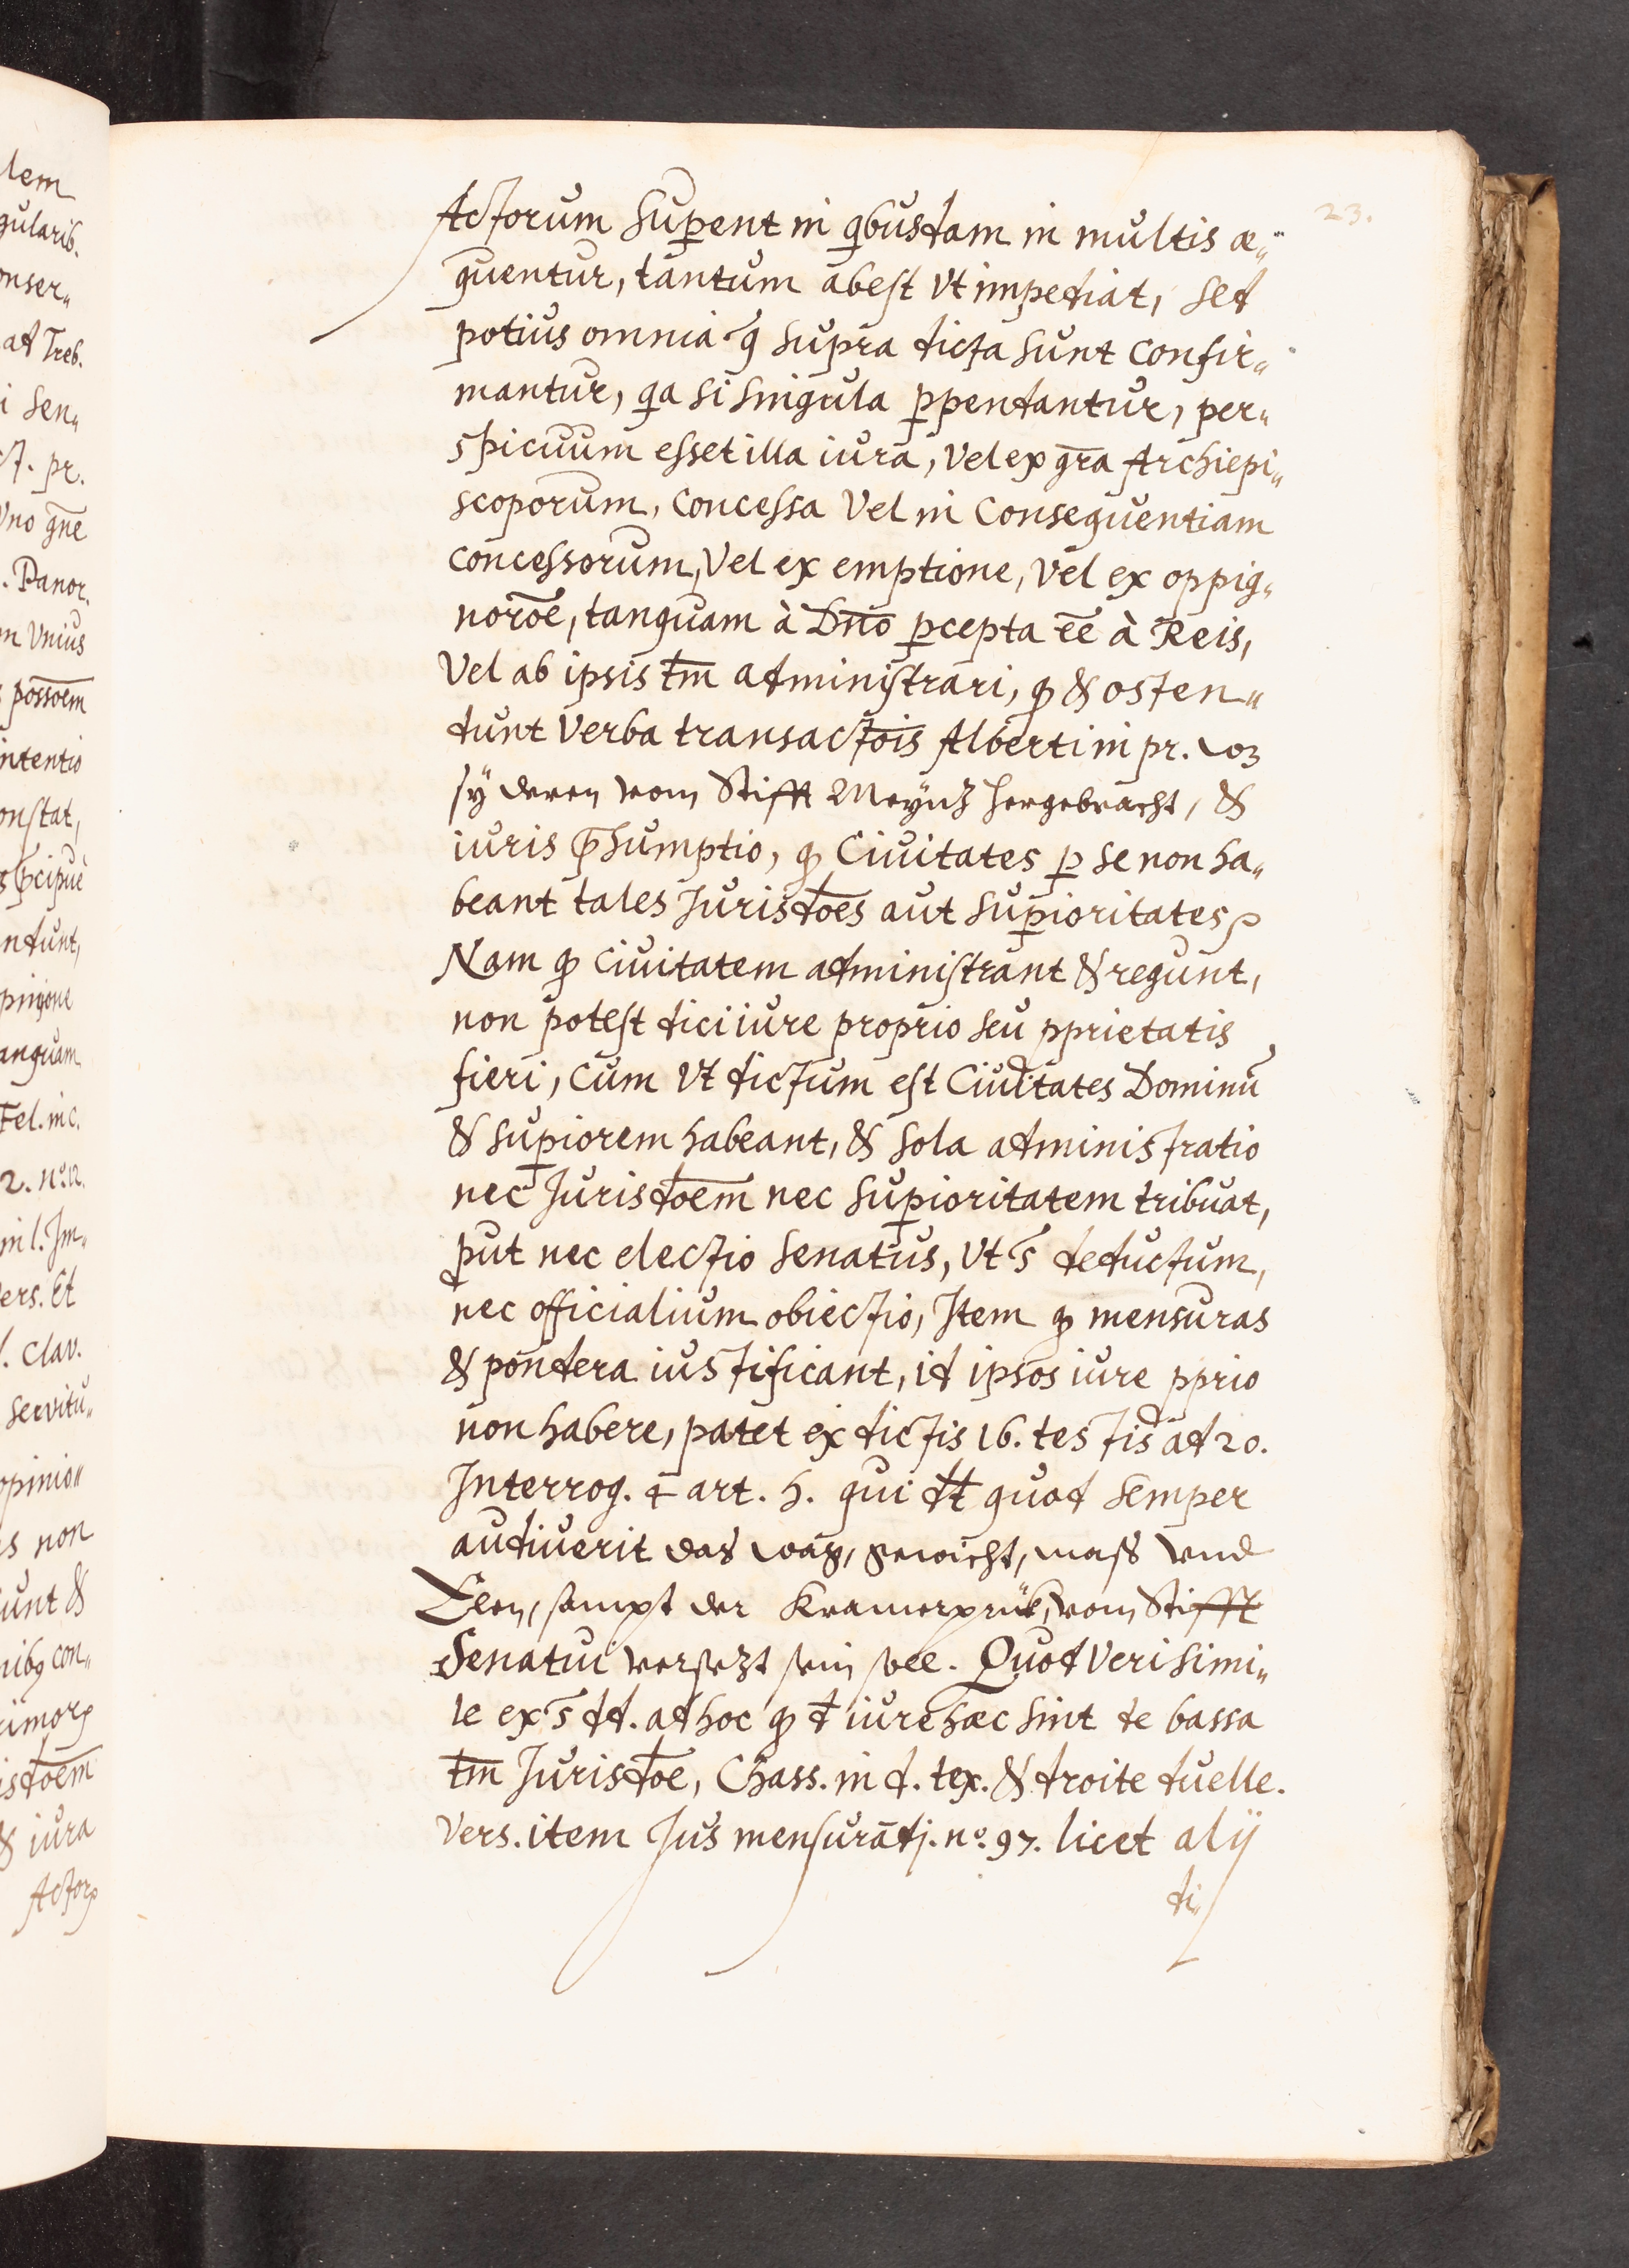 23.
Actorum sup̱ent in qbusdam in multis æ„
quentur, tantum abest vt impediat, sed
potius omnia q̃ supra dicta sunt confir„
mantur, qa si singula p̱pendantur, per„
spicuum esset illa iura, vel ex gr̄a Archiepi„
scoporum, concessa vel in consequentiam
concessorum, vel ex emptione, vel ex oppig„
norōe, tanquam à Dn̄o p̱cepta ēē à Reis,
vel ab ipsis tm̄ administrari, qđ & osten„
dunt verba transactōis Alberti in pr. wz
sÿ deren vom Stifft Meÿnz hergebracht, &
iuris p̃sumptio, qđ Ciuitates p̱ se non ha„
beant tales Jurisdōes aut sup̱ioritates
Nam qđ ciuitatem administrant & regunt,
non potest dici iure proprio seu pprietatis
fieri, cum vt dictum est Ciuitates Dominū
& sup̱iorem habeant, & sola administratio
nec Jurisdōem nec sup̱ioritatem tribuat,
put nec electio senatus, vt s̃ deductum,
nec officialium obiectio, Item qđ mensuras
& pondera iustificant, id ipsos iure pprio
non habere, patet ex dictis 16. testis ad 20.
Interrog. art. h. qui dt quod semper
audiuerit das wag, gewicht, mass vnd
Elen, sampt der Kramerprük, vom Stifft
Senatui versezt sein soll. Quod verisimi„
le ex s̃ dd. ad hoc qđ d iure hæc sint de bassa
tm̄ Jurisdōe, Chass. in d. tex. & droite duelle.
vers. item Jus mensurādj. nº. 97. licet alÿ
di„
lem
gularib.
onser„
ad Treb.
i sen„
pr.
vno gn̄e
. Panor.
m vnius
possōem
intentio
onstat,
p̃cipuè
ndunt,
pinione
anquam
Fel. in c.
2. nº. 12.
in l. Im„
ers. Et
l. Clav.
servitu„
opinio„
s non
unt &
nibq con„
rimorꝝ
isdōem
& iura
Actorꝝ